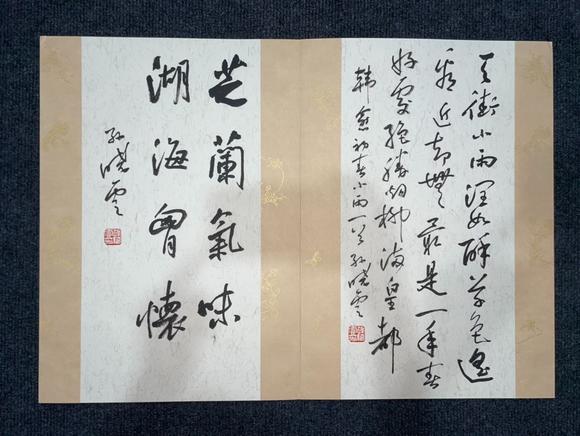 天街小雨润如酥草色遥
看近却無最是一年春
好處绝勝烟柳满皇都
韩愈初春小雨一首孙晓云
芝蘭氣味
湖海胷懷
孙晓云